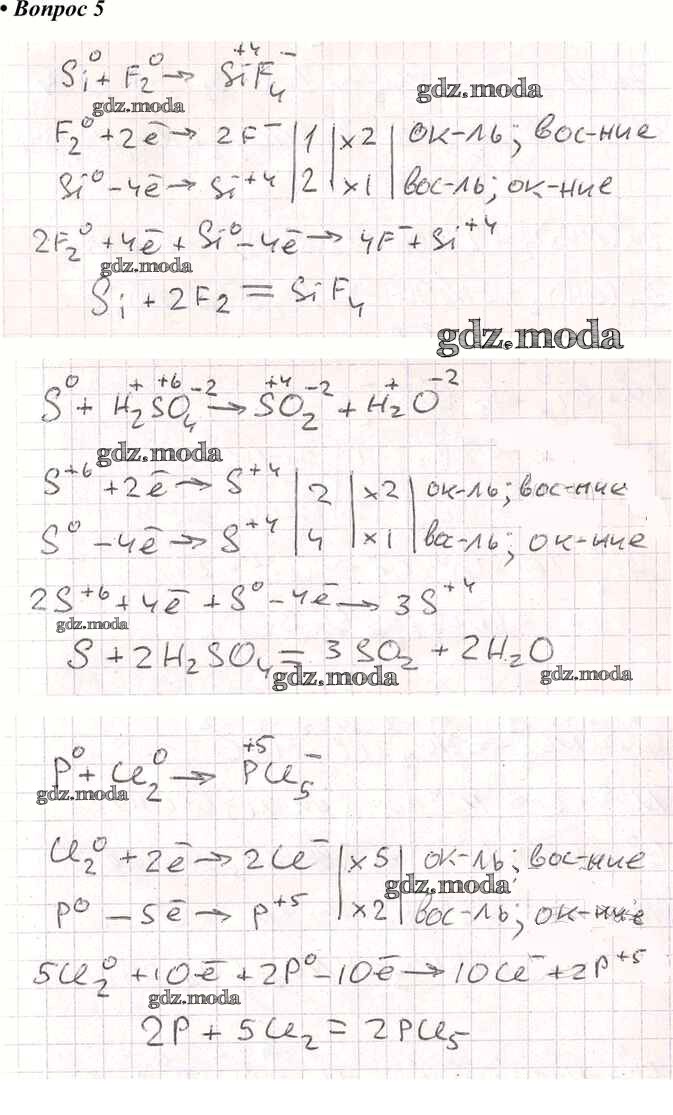 • Вопрос 5
Si⁰ + F₂⁰ → Si⁺⁴F₄⁻
gdz.moda gdz.moda
F₂⁰ + 2ē → 2F⁻ | 1 | ×2 | ок-ль; вос-ние
Si⁰ – 4ē → Si⁺⁴ | 2 | ×1 | вос-ль; ок-ние
2F₂⁰ + 4ē + Si⁰ – 4ē → 4F⁻ + Si⁺⁴
gdz.moda
Si + 2F₂ = SiF₄
gdz.moda
S⁰ + H₂⁺S⁺⁶O₄⁻² → S⁺⁴O₂⁻² + H₂⁺O⁻²
gdz.moda
S⁺⁶ + 2ē → S⁺⁴ | 2 | ×2 | ок-ль; вос-ние
S⁰ – 4ē → S⁺⁴ | 4 | ×1 | вос-ль; ок-ние
2S⁺⁶ + 4ē + S⁰ – 4ē → 3S⁺⁴
gdz.moda
S + 2H₂SO₄ = 3SO₂ + 2H₂O
gdz.moda gdz.moda
P⁰ + Cl₂⁰ → P⁺⁵Cl₅⁻
gdz.moda
Cl₂⁰ + 2ē → 2Cl⁻ | ×5 | ок-ль; вос-ние
gdz.moda
P⁰ – 5ē → P⁺⁵ | ×2 | вос-ль; ок-ние
5Cl₂⁰ + 10ē + 2P⁰ – 10ē → 10Cl⁻ + 2P⁺⁵
gdz.moda
2P + 5Cl₂ = 2PCl₅